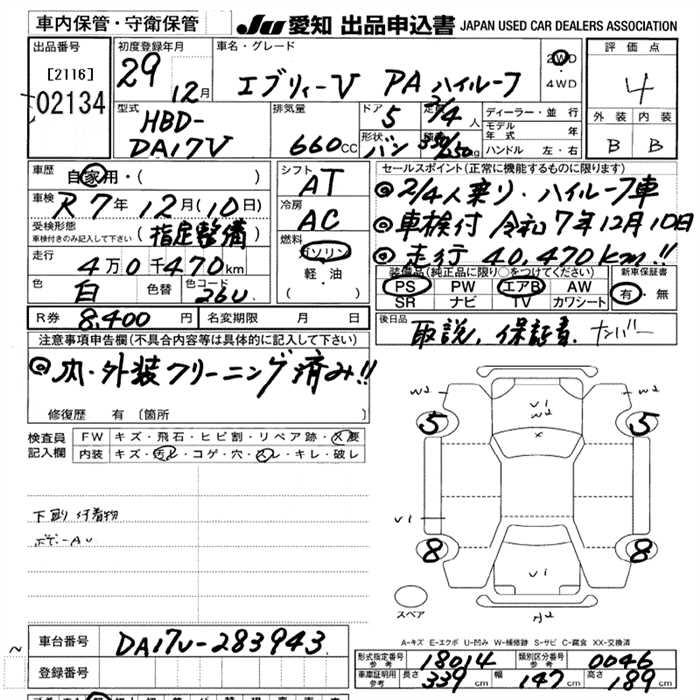 車内保管・守衛保管
JU 愛知 出品申込書 JAPAN USED CAR DEALERS ASSOCIATION
出品番号
[2116]
02134
初度登録年月
29
12月
車名・グレード
エブリィーV PA ハイルーフ
2WD
・
4WD
評価点
4
外装 内装
B B
型式
HBD-
DA17V
排気量
660cc
ドア
5
形状
バン
定員
2/4人
積載
350/250kg
ディーラー・並行
モデル
年式 年
ハンドル 左・右
車歴
自家用・( )
車検
R7年12月(10日)
受検形態
車検付きのみ記入して下さい
(指定整備)
走行
4万0千470km
色
白
色替
色コード
26U
R券 8,400円
名変期限 月 日
シフト
AT
冷房
AC
燃料
ガソリン
軽・油
( )
セールスポイント(正常に機能するものに限ります)
◎2/4人乗り・ハイルーフ車
◎車検付 令和7年12月10日
◎走行 40,470km!!
装備品(純正品に限り○をつけてください)
PS PW エアB AW
SR ナビ TV カワシート
新車保証書
有・無
後日品
取説、保証書、ナンバー
注意事項申告欄(不具合内容等は具体的に記入して下さい)
◎内・外装クリーニング済み!!
修復歴 有 〔箇所
検査員
記入欄
FW キズ・飛石・ヒビ割・リペア跡・X要
内装 キズ・汚レ・コゲ・穴・スレ・キレ・破レ
下廻り付着物
W2
W2
U1
W2
X
5
5
U1
8
8
U1
スペア
A-キズ E-エクボ U-凹み W-補修跡 S-サビ C-腐食 XX-交換済
車台番号
DA17V-283943
登録番号
形式指定番号
参考
18014
類別区分番号
参考
0046
車庫証明用
参考
長さ
339cm
幅
147cm
高さ
189cm